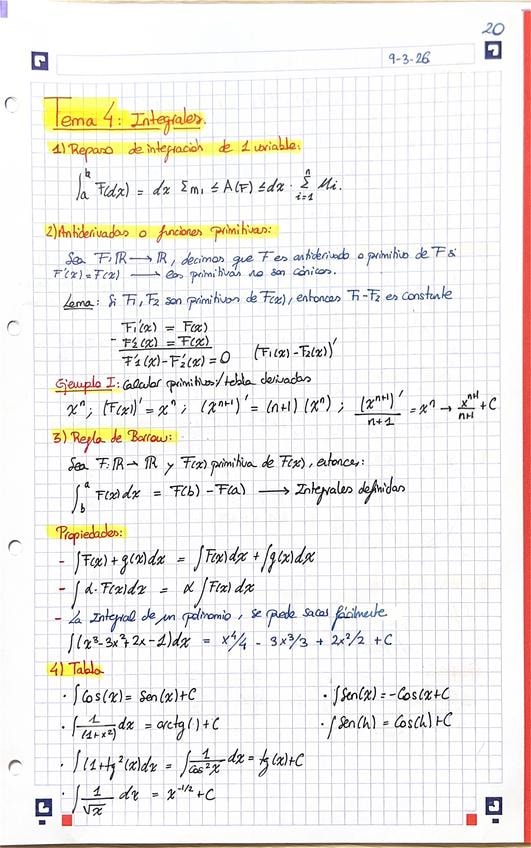 20
9-3-26
Tema 4: Integrales.
1) Repaso de integración de 1 variable:
∫_a^b F(dx) = dx Σm₁ ≤ A(F) ≤ dx · Σ_{i=1}^n Mi.
2) Antiderivadas o funciones primitivas:
Sea F: ℝ → ℝ, decimos que F es antiderivada o primitiva de F si
F'(x) = F(x) → las primitivas no son únicas.
Lema: Si F₁, F₂ son primitivas de F(x), entonces F₁-F₂ es constante
F₁'(x) = F(x)
- F₂'(x) = F(x)
F₁'(x) - F₂'(x) = 0 (F₁(x) - F₂(x))'
Ejemplo I: Calcular primitivas/tabla derivadas
xⁿ; (F(x))' = xⁿ; (xⁿ⁺¹)' = (n+1) (xⁿ); (xⁿ⁺¹)'/n+1 = xⁿ → xⁿ⁺¹/n+1 + C
3) Regla de Barrow:
Sea F: ℝ → ℝ y F(x) primitiva de F(x), entonces:
∫_b^a F(x) dx = F(b) - F(a) → Integrales definidas
Propiedades:
- ∫F(x) + g(x) dx = ∫F(x) dx + ∫g(x) dx
- ∫α · F(x) dx = α ∫F(x) dx
- La Integral de un polinomio, se puede sacar fácilmente
∫(x³-3x²+2x-1) dx = x⁴/4 - 3x³/3 + 2x²/2 + C
4) Tabla
· ∫Cos(x) = Sen(x)+C · ∫Sen(x) = -Cos(x+C
· ∫1/(1+x²) dx = arctg( )+C · ∫Sen(h) = Cos(h)+C
· ∫(1+tg²(x) dx = ∫1/cos²x dx = tg(x)+C
· ∫1/√x dx = x^-1/2 + C